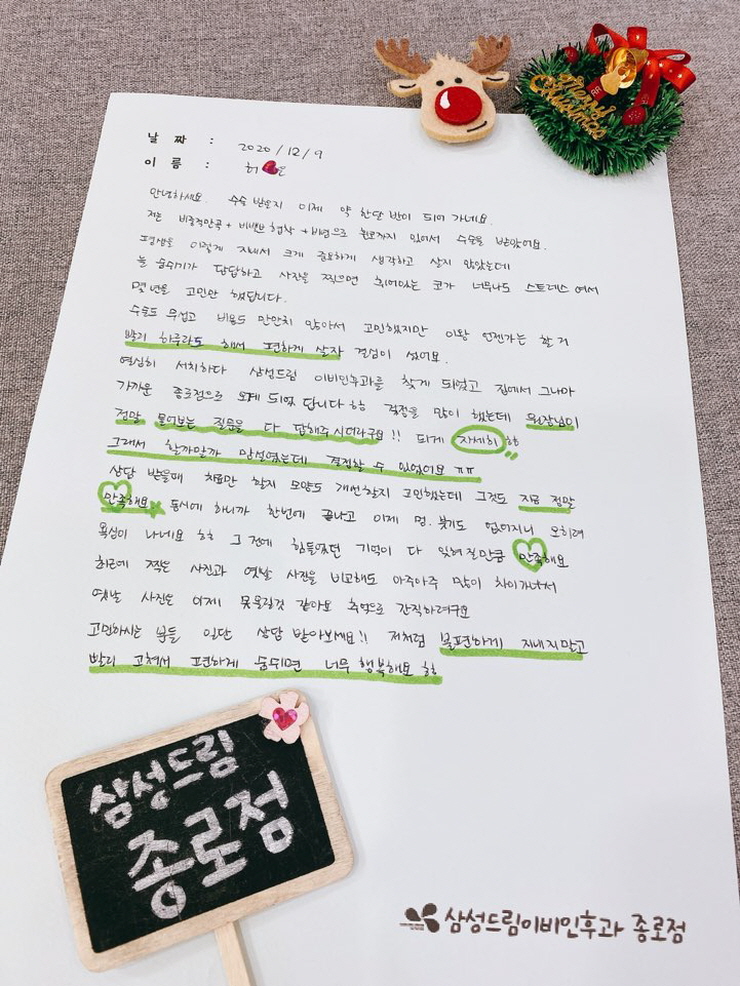 Merry Christmas
날 짜 : 2020 / 12 / 9
이 름 : 허
안녕하세요. 수술 받은지 이제 약 한달 반이 되어 가네요.
저는 비중격만곡 + 비밸브 협착 + 비염으로 휜코까지 있어서 수술을 받았어요.
평생을 이렇게 지내서 크게 중요하게 생각하고 살지 않았는데
늘 숨쉬기가 답답하고 사진을 찍으면 휘어있는 코가 너무나도 스트레스여서
몇 년을 고민만 했답니다.
수술도 무섭고 비용도 만만치 않아서 고민했지만 이왕 언젠가는 할 거
빨리 하루라도 해서 편하게 살자 결심이 섰어요.
열심히 서치하다 삼성드림 이비인후과를 찾게 되었고 집에서 그나마
가까운 종로점으로 오게 되었답니다 ㅎㅎ 걱정을 많이 했는데 원장님이
정말 물어보는 질문을 다 답해주시더라구요!! 되게 자세히 ㅎㅎ
그래서 할까말까 망설였는데 결정할 수 있었어요 ㅠㅠ
상담 받을때 치료만 할지 모양도 개선할지 고민했는데 그것도 지금 정말
만족해요 동시에 하니까 한번에 끝나고 이제 멍, 붓기도 없어지니 오히려
욕심이 나네요 ㅎㅎ 그 전에 힘들었던 기억이 다 잊혀질만큼 만족해요
최근에 찍은 사진과 옛날 사진을 비교해도 아주아주 많이 차이가나서
옛날 사진은 이제 못올릴것 같아요 추억으로 간직하려구요
고민하시는 분들 일단 상담 받아보세요!! 저처럼 불편하게 지내지말고
빨리 고쳐서 편하게 숨쉬면 너무 행복해요 ㅎㅎ
삼성드림
종로점
삼성드림이비인후과 종로점